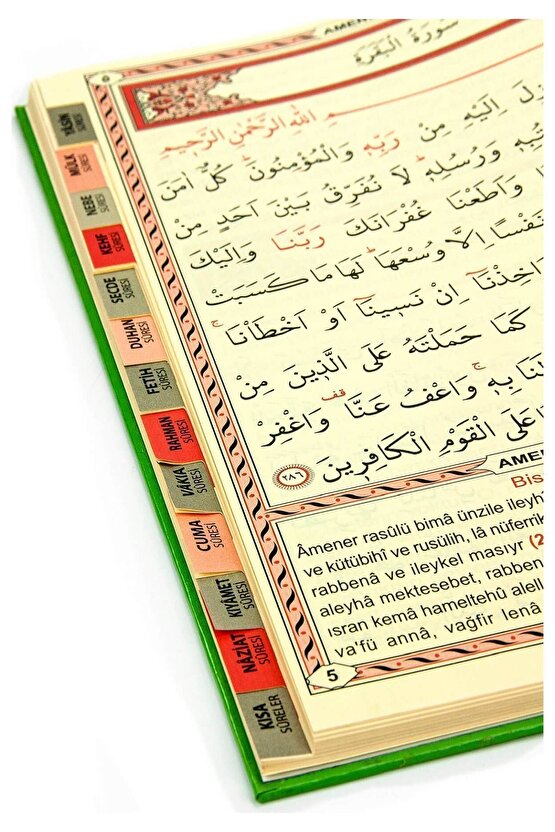 AMENER
٥
سُورَةُ الْبَقَرَةِ
مِ اللهِ الرَّحْمٰنِ الرَّحِيمِ
زِلَ اِلَيْهِ مِنْ رَبِّهٖ وَالْمُؤْمِنُونَ كُلٌّ اٰمَنَ
وَرُسُلِهٖ لَا نُفَرِّقُ بَيْنَ اَحَدٍ مِنْ
وَاَطَعْنَا غُفْرَانَكَ رَبَّنَا وَاِلَيْكَ
نَفْسًا اِلَّا وُسْعَهَا لَهَا مَا كَسَبَتْ
اِنْ نَسٖينَا اَوْ اَخْطَاْنَا
كَمَا حَمَلْتَهُ عَلَى الَّذٖينَ مِنْ
لَنَا بِهٖ وَاعْفُ عَنَّا وَاغْفِرْ
عَلَى الْقَوْمِ الْكَافِرٖينَ
٢٨٦
AMENE
Bis
Âmener rasûlü bimâ ünzile ileyhi
ve kütübihî ve rusülih, lâ nüferrik
rabbenâ ve ileykel masıyr (2
aleyhâ mektesebet, rabben
ısran kemâ hameltehû alell
va'fü annâ, vağfir lenâ
5
YÂSİN SÛRESİ
MÜLK SÛRESİ
NEBE SÛRESİ
KEHF SÛRESİ
SECDE SÛRESİ
DUHAN SÛRESİ
FETİH SÛRESİ
RAHMAN SÛRESİ
VÂKIA SÛRESİ
CUMA SÛRESİ
KIYÂMET SÛRESİ
NÂZİAT SÛRESİ
KISA SÛRELER